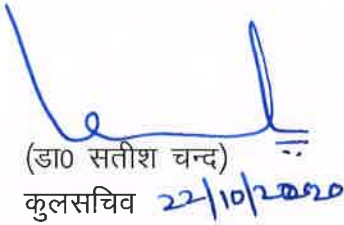 (डा0 सतीश चन्द)
कुलसचिव 22/10/2020